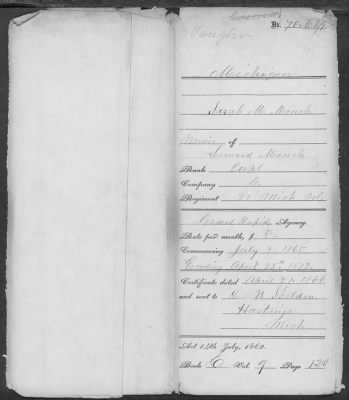 Vaughn
No. 70.684
Michigan
Sarah M. Munch
Minor of
Leonard Munch
Rank Corpl
Company
Regiment Mich Vols
Grand Rapids Agency.
Rate per month, $ 8
Commencing July 2, 1865
Ending April 25th 1873
Certificate dated April 24 1866
and sent to H N Sheldon
Hastings
Mich
Act 14th July, 1862.
Book C Vol. 9 Page 120